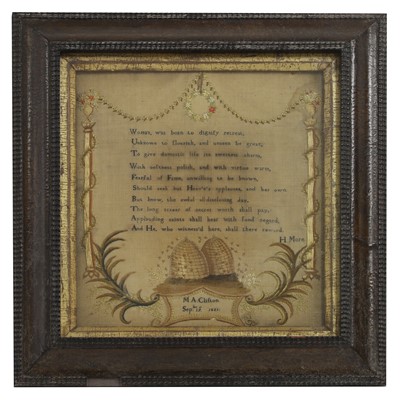 Woman, was born to dignify retreat,
Unknown to flourish, and unseen be great;
To give domestic life its sweetest charm,
With softness polish, and with virtue warm,
Fearful of Fame, unwilling to be known,
Should seek but Heav'n's applauses, and her own
But know, the end of
The long of secret worth shall pay;
Applauding saints shall hear with fond regard,
And He, who witness'd here, shall there reward.
H. More
M A. Clifton
Sepr